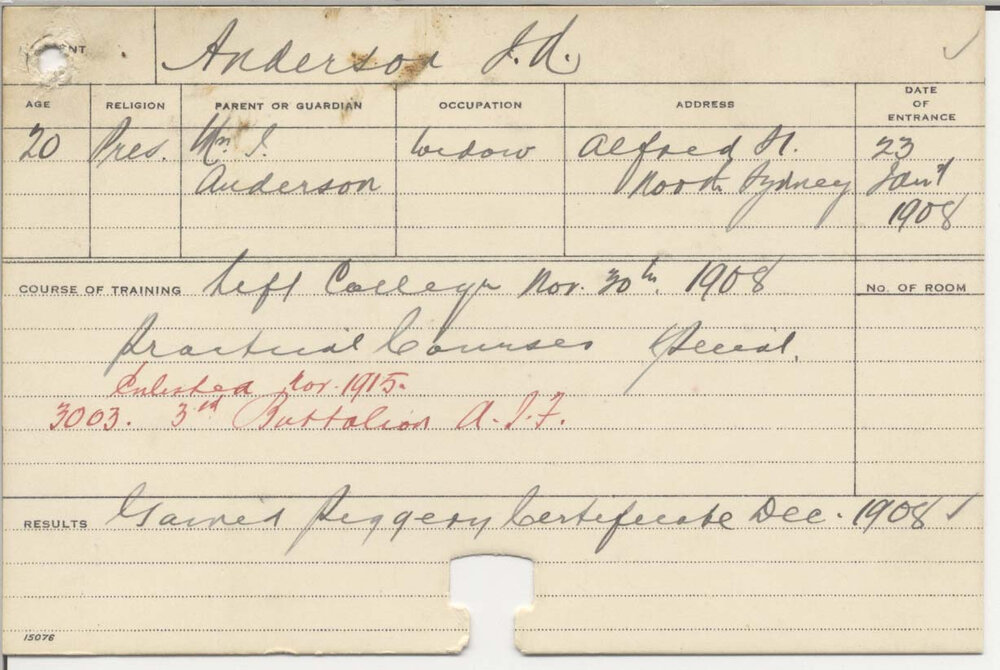 Anderson J.A.
AGE RELIGION PARENT OR GUARDIAN OCCUPATION ADDRESS DATE OF ENTRANCE
20 Pres. Mrs I. Widow Alfred St. 23
Anderson North Sydney Jan'y
1908
COURSE OF TRAINING Left College Nov. 30th. 1908 No. OF ROOM
Practical Courses Special.
Enlisted Nov. 1915.
3003. 3rd Battalion A.I.F.
RESULTS Gained Piggery Certificate Dec. 1908 ✓
15076